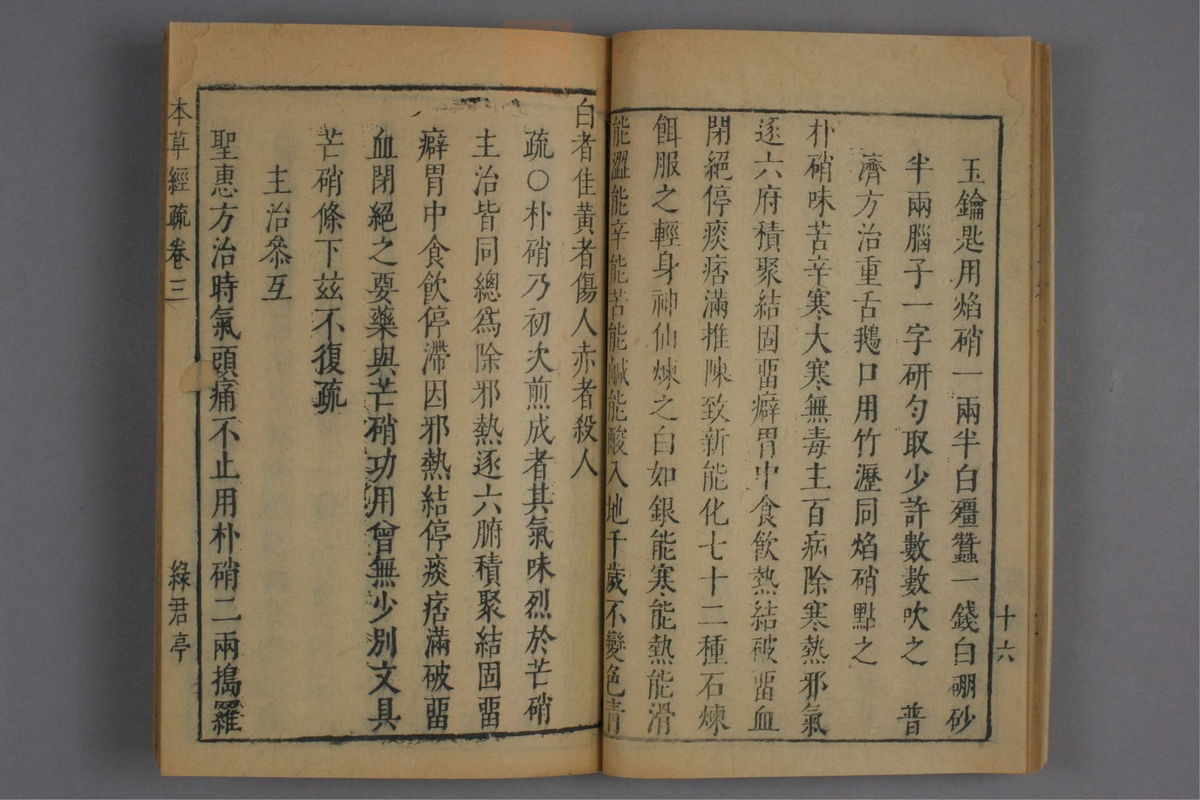 十六
玉鑰匙用焰硝一兩半白殭蠶一錢白硼砂
半兩腦子一字研勻取少許數數吹之　普
濟方治重舌鵝口用竹瀝同焰硝點之
朴硝味苦辛寒大寒無毒主百病除寒熱邪氣
逐六府積聚結固畱癖胃中食飲熱結破畱血
閉絕停痰痞滿推陳致新能化七十二種石煉
餌服之輕身神仙煉之白如銀能寒能熱能滑
能澀能辛能苦能鹹能酸入地千歲不變色青
白者佳黃者傷人赤者殺人
疏○朴硝乃初次煎成者其氣味烈於芒硝
主治皆同總爲除邪熱逐六腑積聚結固畱
癖胃中食飲停滯因邪熱結停痰痞滿破畱
血閉絕之要藥與芒硝功用曾無少別文具
芒硝條下兹不復疏
主治叅互
聖惠方治時氣頭痛不止用朴硝二兩搗羅
本草經疏卷三
綠君亭